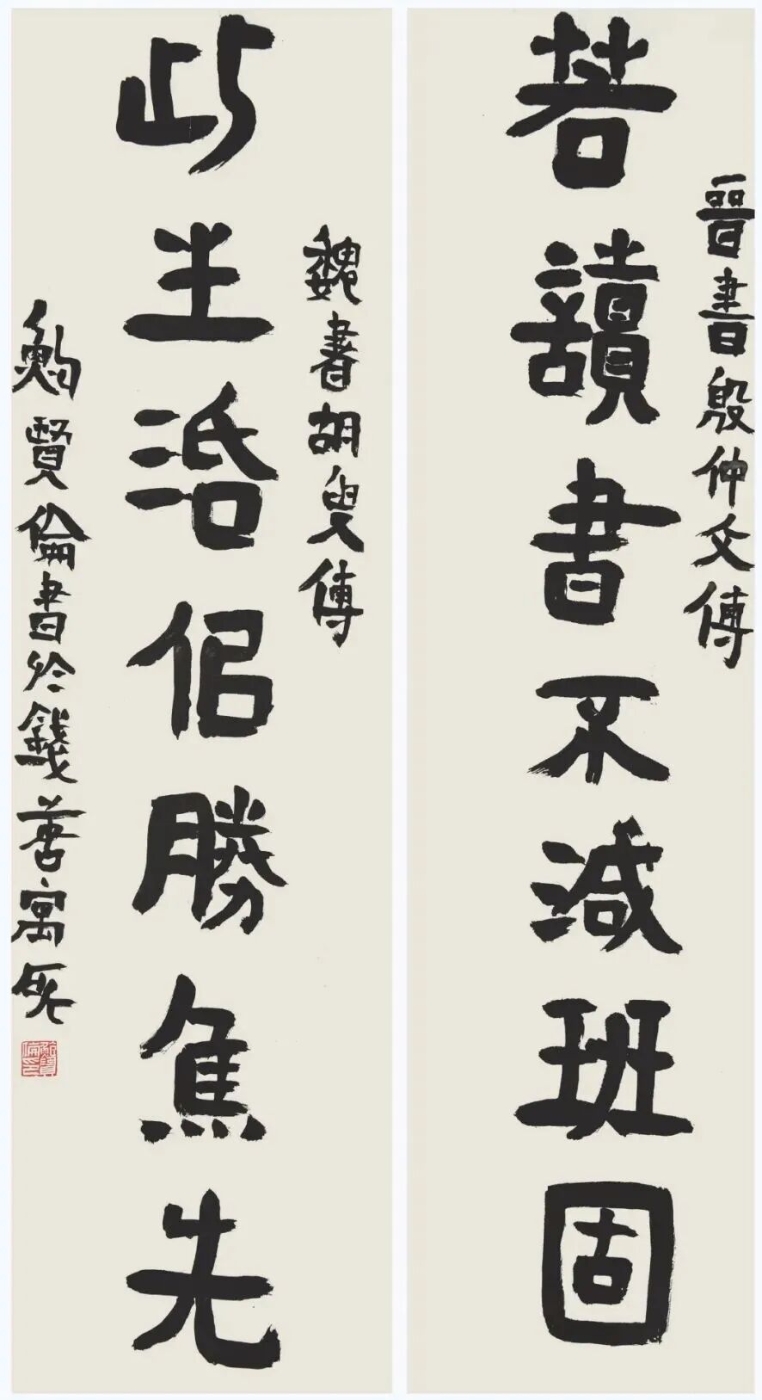 若讀書不減班固
晉書殷仲文傳
此生活佀勝焦先
魏書胡叟傳
鮑賢倫書於錢唐寓所